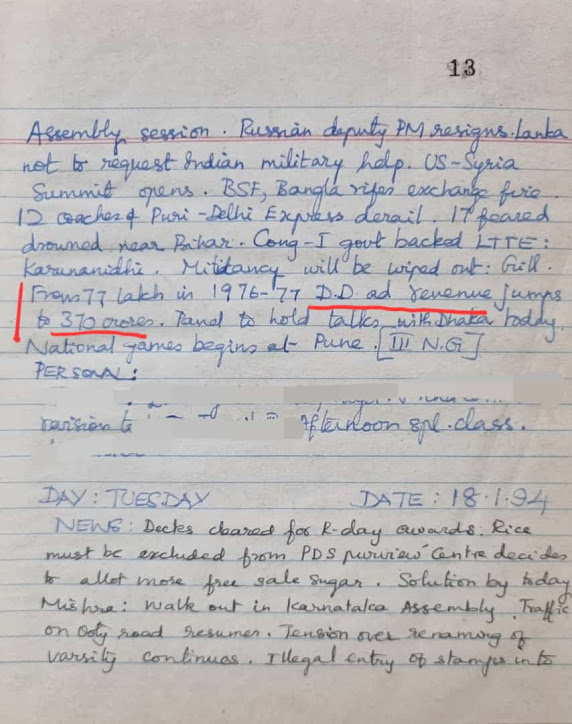 13
Assembly session. Russian deputy PM resigns. Lanka
not to request Indian military help. US-Syria
Summit opens. BSF, Bangla rifes exchange fire.
12 coaches of Puri-Delhi Express derail. 17 feared
drowned near Bihar. Cong-I govt backed LTTE:
Karunanidhi. Militancy will be wiped out: Gill.
From 77 lakh in 1976-77 D.D. ad revenue jumps
to 370 crores. Panal to hold talks with Dhaka today.
National games begins at Pune. [III N.G]
PERSONAL:
Afternoon spl. class.
DAY: TUESDAY DATE: 18.1.94
NEWS: Decks cleared for R-day awards. Rice
must be excluded from PDS purview Centre decides
to allot more free sale sugar. Solution by today
Mishra: Walk out in Karnataka Assembly. Traffic
on Ooty road resumes. Tension over renaming of
varsity continues. Illegal entry of stamps into